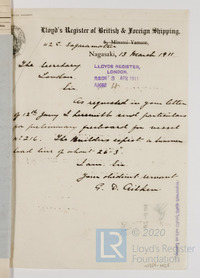 Lloyd's Register of British & Foreign Shipping,
42C. Sagaramatsu
Minami-Yamate,
Nagasaki, 13 March 1911
The Secretary
London
LLOYDS REGISTER,
LONDON.
APR 1911
Sir
As requested in your letter
of 12th Jany I herewith send particulars
for preliminary freeboard for vessel
No 216. The Builders expect a summer
load line of about 26'-3".
I am Sir
Your obedient servant
G. D. Aitken
© 2020
Lloyd's Register
Foundation